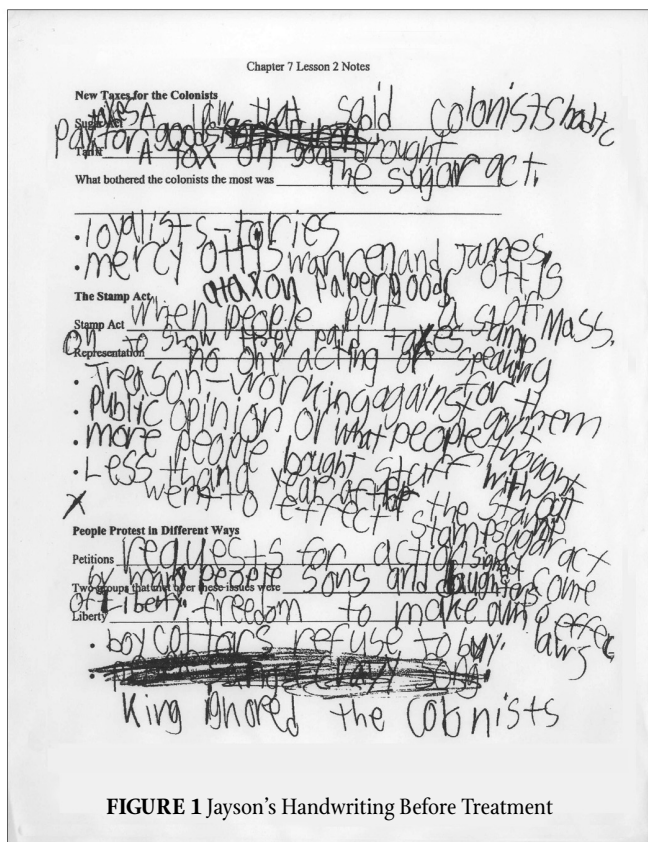 Chapter 7 Lesson 2 Notes
New Taxes for the Colonists
taxes A law that said colonists had to
Sugar Act
pay for goods
Tariff A tax on goods brought
What bothered the colonists the most was The sugar act.
• loyalists-tories
• mercy ottis warren and James
ottis
a tax on paper goods
The Stamp Act
Mass.
Stamp Act when people put a stamp
on to show they paid taxes
Representation no one acting or speaking
for them
• Treason-working against gov't
• Public opinion or what people thought
• more people bought stuff without
the stamp
• Less than a year after the sugar act
went to effect stamp act came
X
People Protest in Different Ways
Petitions requests for action signed
by many people sons and daughters
Two groups that met over these issues were
of Liberty.
Liberty freedom to make own laws
• boycottars refuse to buy.
King ignored the colonists
FIGURE 1 Jayson's Handwriting Before Treatment